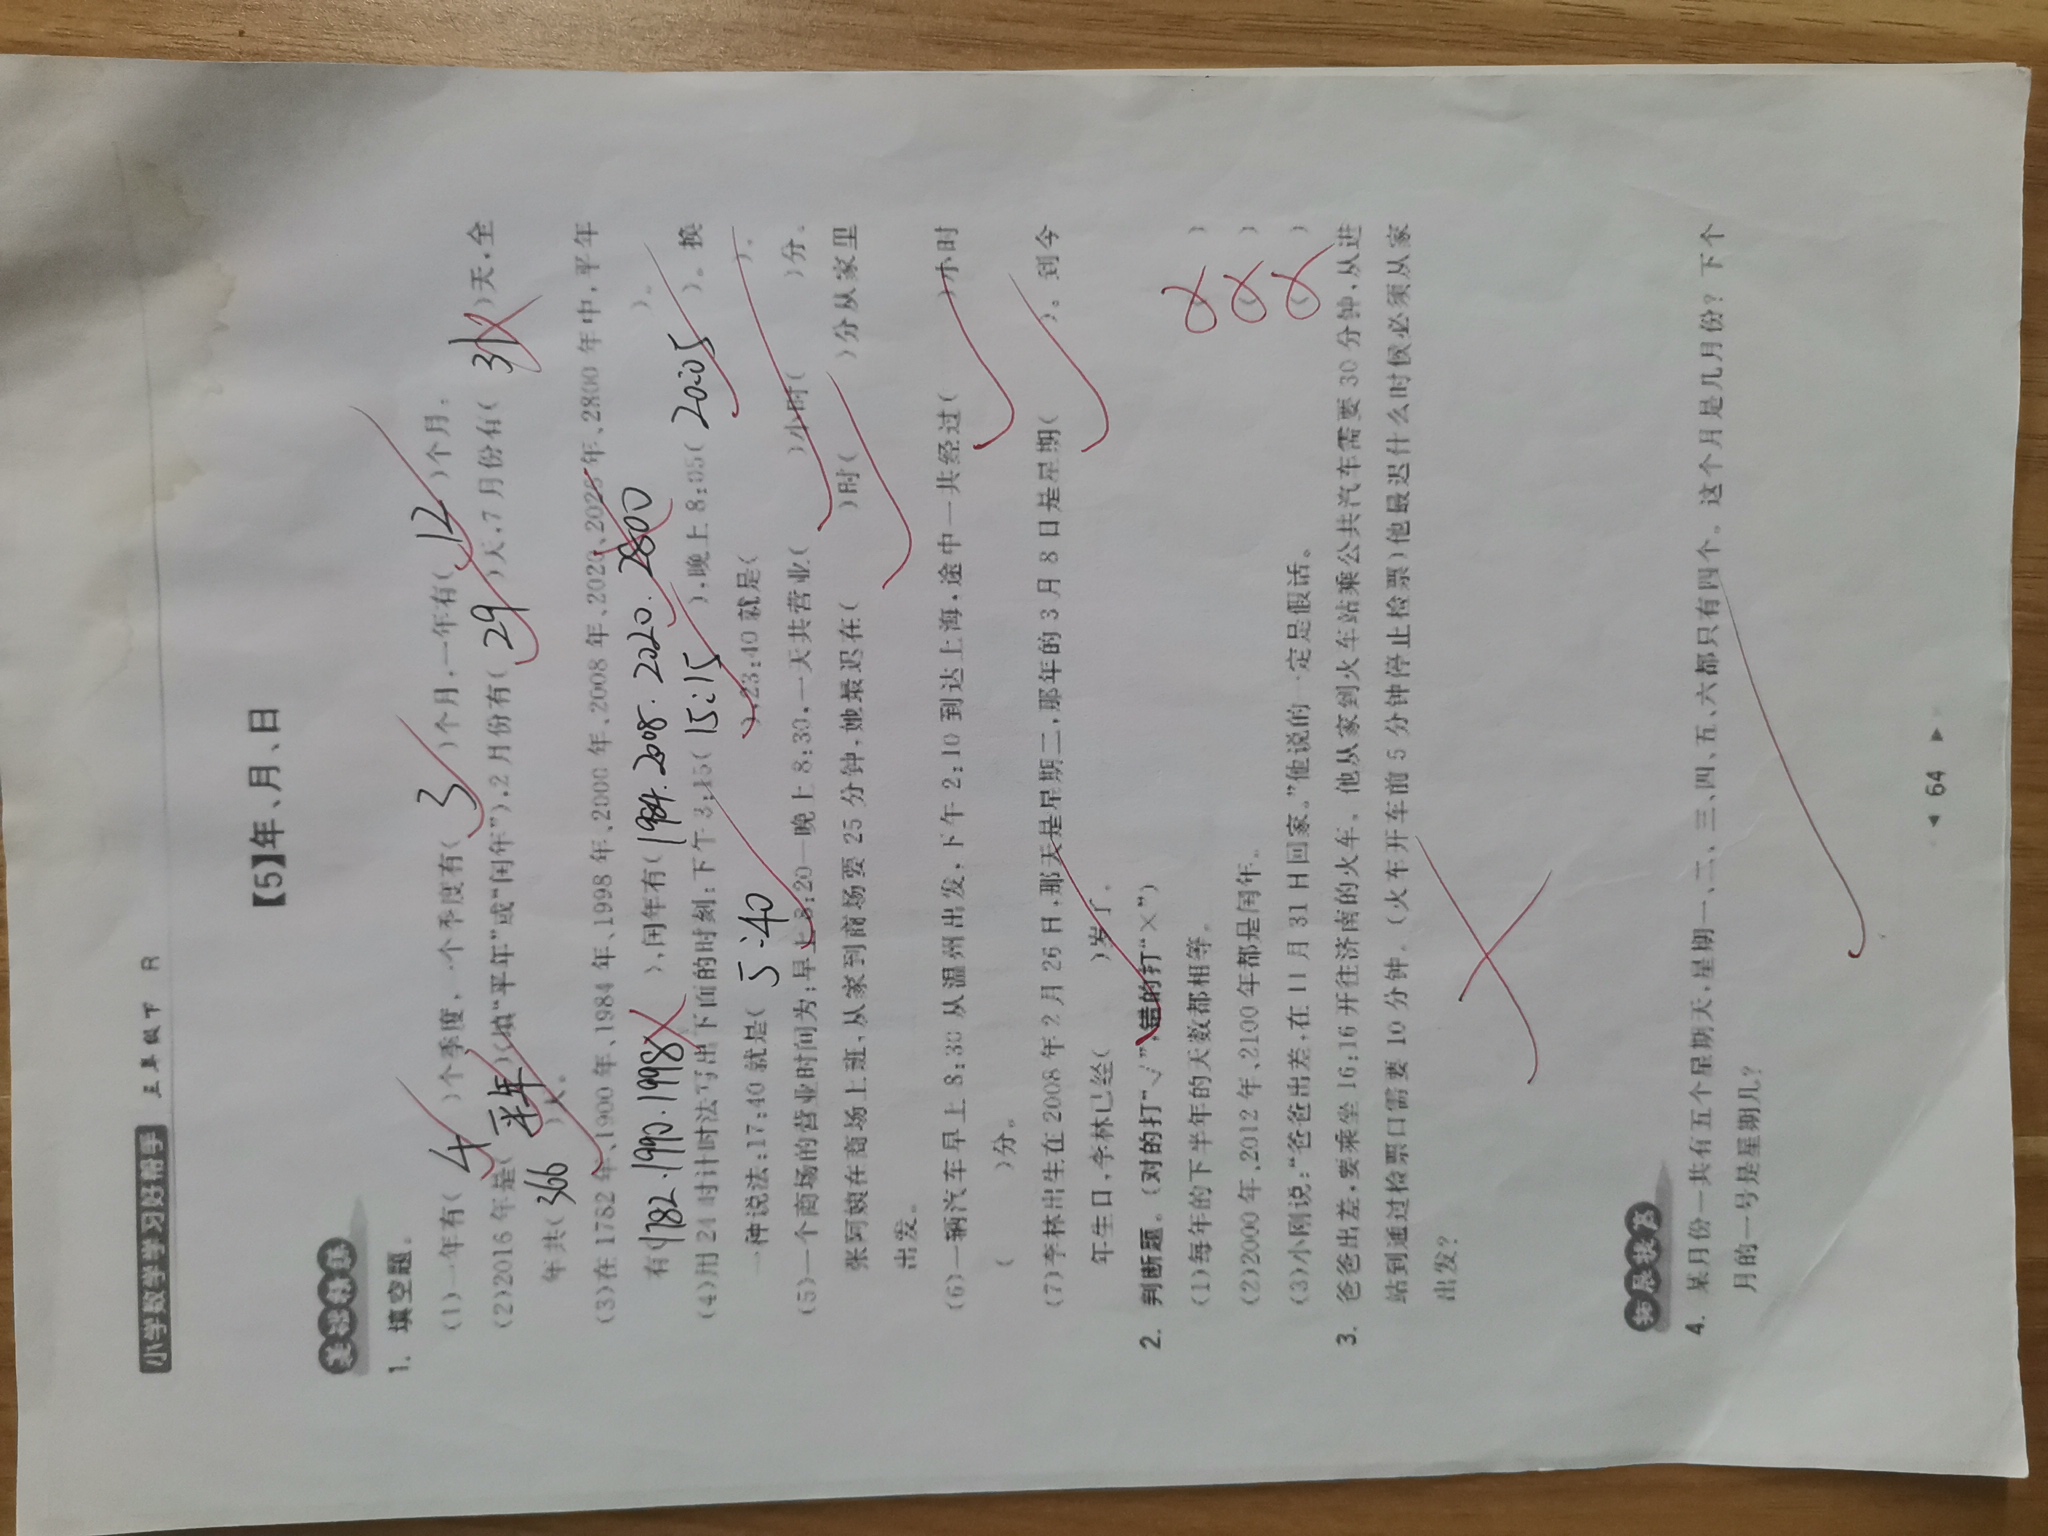 小学数学学习好帮手 三年级下 R
【5】年、月、日
基础精练
1. 填空题。
(1)一年有( 4 )个季度,一个季度有( 3 )个月,一年有( 12 )个月。
(2)2016年是( 平年 )(填“平年”或“闰年”),2月份有( 29 )天,7月份有( 31 )天,全
年共( 366 )天。
(3)在1782年、1900年、1984年、1998年、2000年、2008年、2020、2028年、2800年中,平年
有(1782.1990.1998 ),闰年有( 1984.2008.2020.2800 )。
(4)用24时计时法写出下面的时刻:下午3:15( 15:15 ),晚上8:05( 20:05 )。换
一种说法:17:40就是( 5:40 ),23:40就是( )。
(5)一个商场的营业时间为:早上8:20—晚上8:30,一天共营业( )小时( )分。
张阿姨在商场上班,从家到商场要25分钟,她最迟在( )时( )分从家里
出发。
(6)一辆汽车早上8:30从温州出发,下午2:10到达上海,途中一共经过( )小时
( )分。
(7)李林出生在2008年2月26日,那天是星期二,那年的3月8日是星期( )。到今
年生日,李林已经( )岁了。
2. 判断题。(对的打“√”,错的打“×”)
(1)每年的下半年的天数都相等。 ( )
(2)2000年、2012年、2100年都是闰年。 ( )
(3)小刚说:“爸爸出差,在11月31日回家。”他说的一定是假话。 ( )
3. 爸爸出差,要乘坐16:16开往济南的火车。他从家到火车站乘公共汽车需要30分钟,从进
站到通过检票口需要10分钟。(火车开车前5分钟停止检票)他最迟什么时候必须从家
出发?
拓展提高
4. 某月份一共有五个星期天,星期一、二、三、四、五、六都只有四个。这个月是几月份?下个
月的一号是星期几?
64